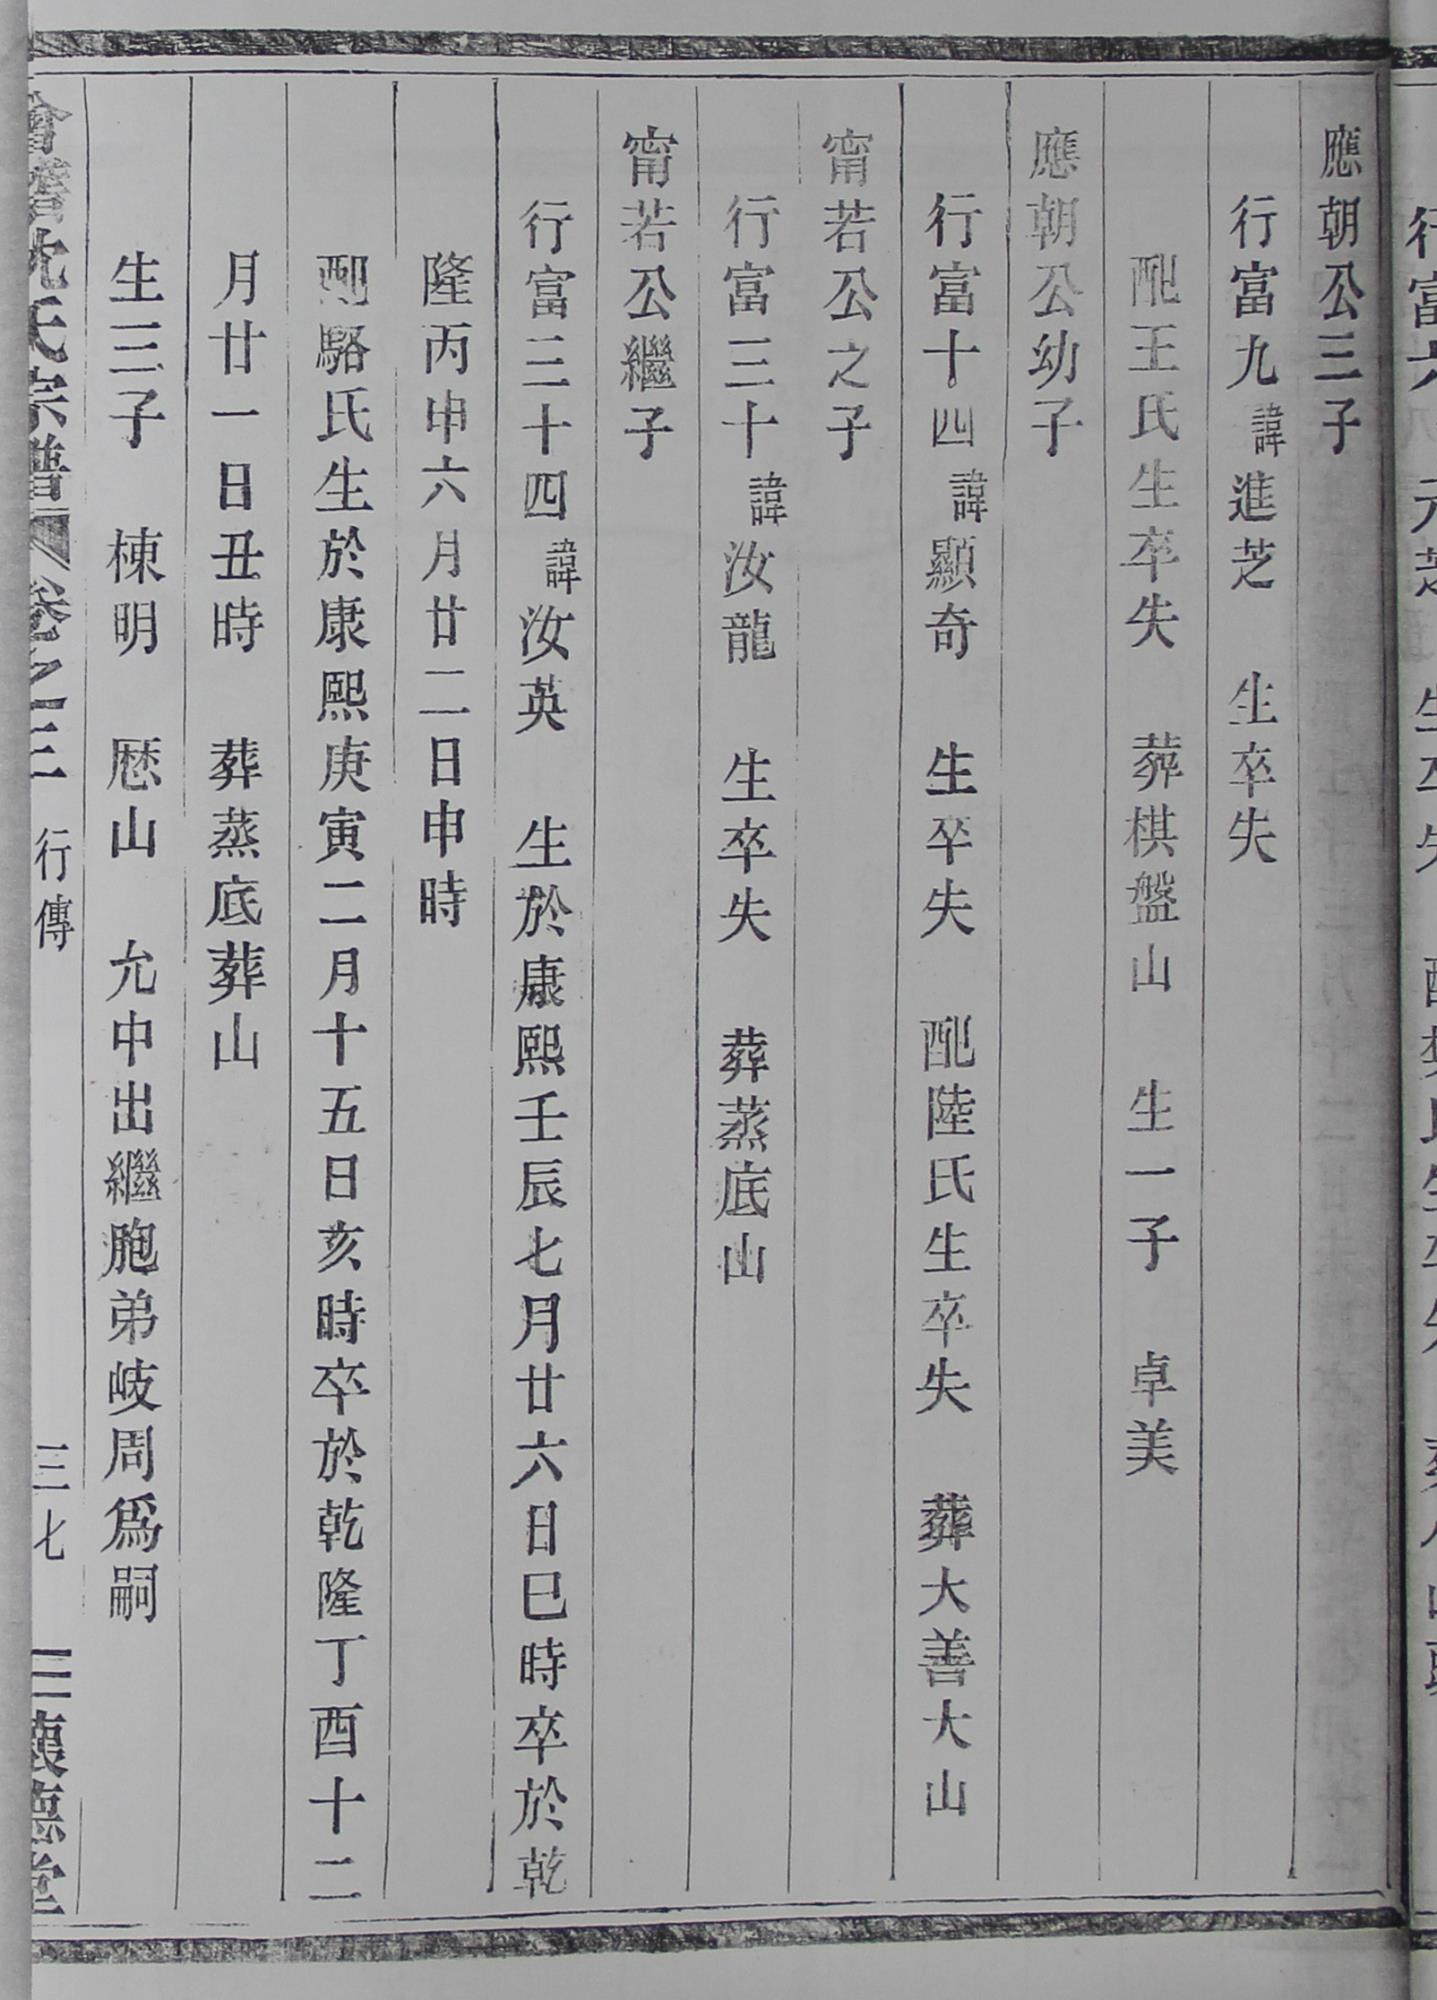 應朝公三子
行富九諱進芝　生卒失
配王氏生卒失　葬棋盤山　生一子　卓美
應朝公幼子
行富十四諱顯奇　生卒失　配陸氏生卒失　葬大善大山
甯若公之子
行富三十諱汝龍　生卒失　葬蒸底山
甯若公繼子
行富三十四諱汝英　生於康熙壬辰七月廿六日巳時卒於乾
隆丙申六月廿二日申時
配駱氏生於康熙庚寅二月十五日亥時卒於乾隆丁酉十二
月廿一日丑時　葬蒸底葬山
生三子　棟明　歷山　允中出繼胞弟岐周爲嗣
沈氏宗譜　卷之三　行傳　三七　懷德堂